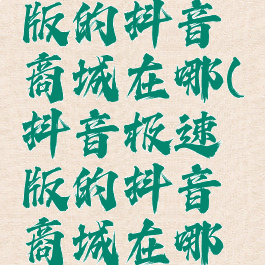 版的抖音
商城在哪(
抖音极速
版的抖音
商城在哪